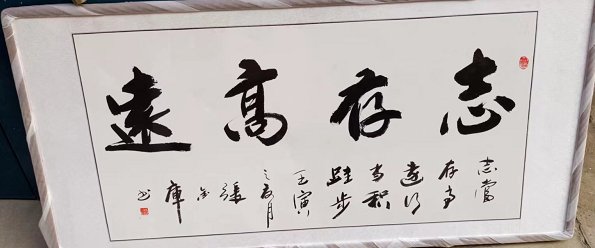 志存高遠
志當
存高
遠行
當積
跬步
壬寅
之夏月
張
金
庫
書